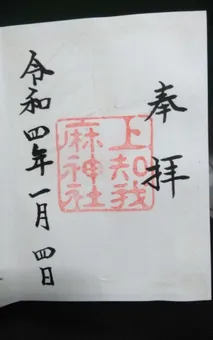 奉拝
上知我
麻神社
令和四年一月四日